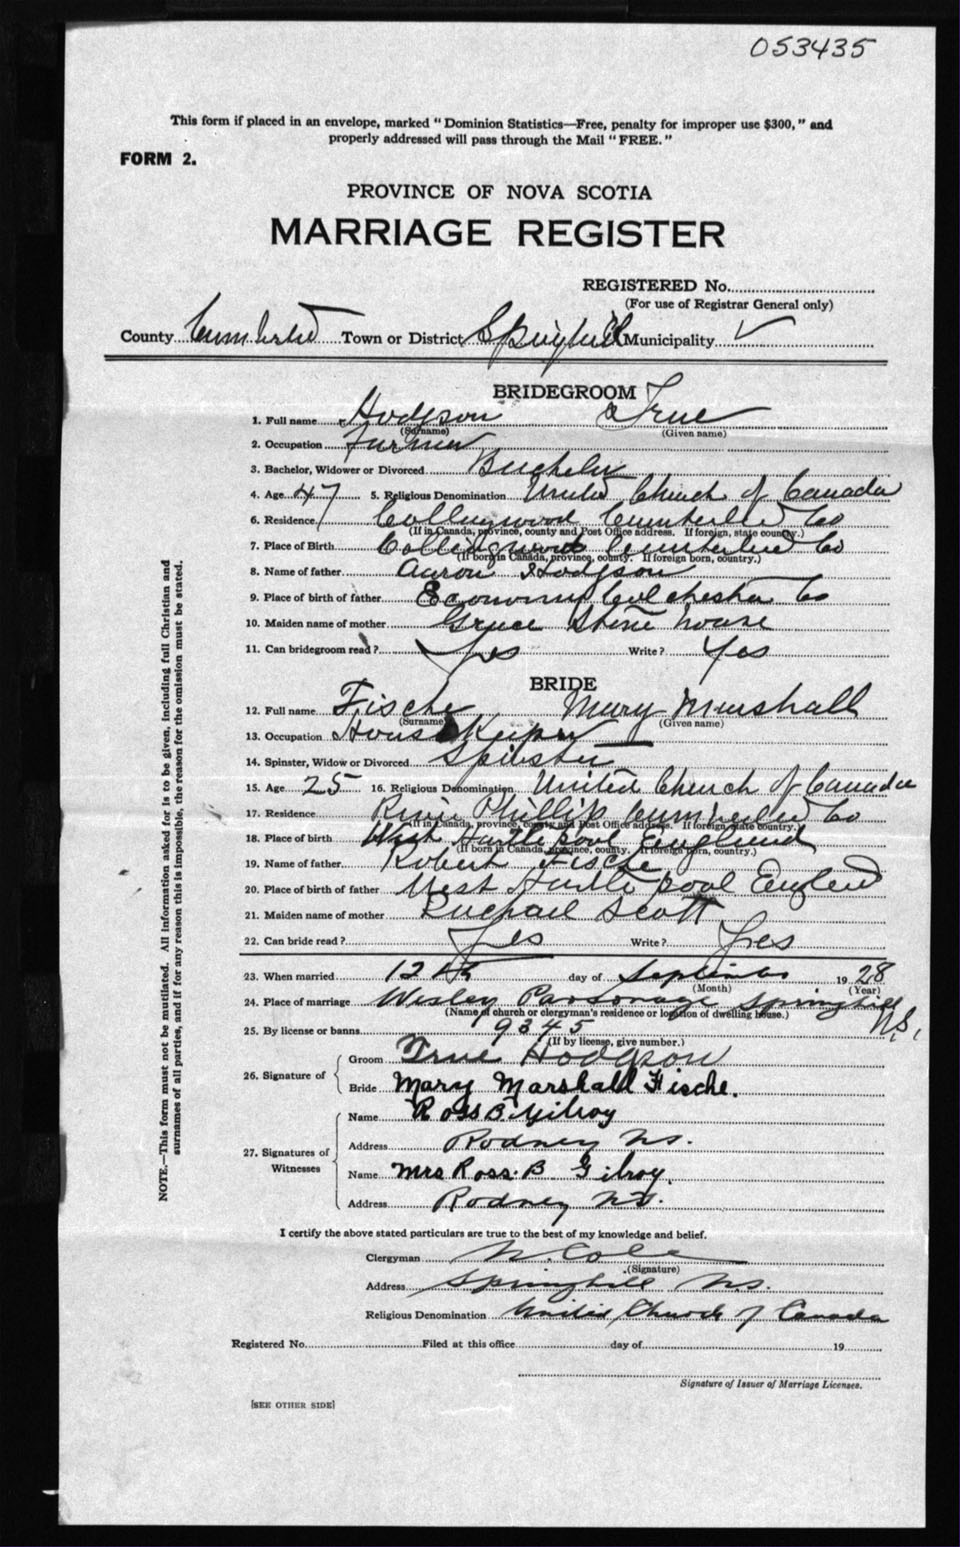 053435
This form if placed in an envelope, marked "Dominion Statistics—Free, penalty for improper use $300," and
properly addressed will pass through the Mail "FREE."
FORM 2.
PROVINCE OF NOVA SCOTIA
MARRIAGE REGISTER
REGISTERED No.
(For use of Registrar General only)
County Town or District Springhill Municipality ✓
BRIDEGROOM
1. Full name Hodgson True
(Surname) (Given name)
2. Occupation Farmer
3. Bachelor, Widower or Divorced Bachelor
4. Age 47 5. Religious Denomination United Church of Canada
6. Residence Collingwood Cumberland Co
(If in Canada, province, county and Post Office address. If foreign, state country.)
7. Place of Birth Collingwood Cumberland Co
(If born in Canada, province, county. If foreign born, country.)
8. Name of father Aaron Hodgson
9. Place of birth of father Economy Colchester Co
10. Maiden name of mother Grace
11. Can bridegroom read? Yes Write? Yes
BRIDE
12. Full name Fische Mary Marshall
(Surname) (Given name)
13. Occupation House Keeper
14. Spinster, Widow or Divorced Spinster
15. Age 25 16. Religious Denomination United Church of Canada
17. Residence River Phillip Cumberland Co
(If in Canada, province, county and Post Office address. If foreign state country.)
18. Place of birth West Hartlepool England
(If born in Canada, province, county. If foreign born, country.)
19. Name of father Robert Fische
20. Place of birth of father West Hartlepool England
21. Maiden name of mother Rachael Scott
22. Can bride read? Yes Write? Yes
23. When married 12th day of September 1928
(Month) (Year)
24. Place of marriage Wesley Parsonage Springhill N.S.
(Name of church or clergyman's residence or location of dwelling house.)
25. By license or banns 9345
(If by license, give number.)
26. Signature of
Groom True Hodgson
Bride Mary Marshall Fische.
27. Signatures of Witnesses
Name Ross B Gilroy
Address Rodney N.S.
Name Mrs Ross. B Gilroy.
Address Rodney N.S.
I certify the above stated particulars are true to the best of my knowledge and belief.
Clergyman W. Cole
(Signature)
Address Springhill N.S.
Religious Denomination United Church of Canada
Registered No. Filed at this office day of 19
Signature of Issuer of Marriage Licenses.
[SEE OTHER SIDE]
NOTE.—This form must not be mutilated. All information asked for is to be given, including full Christian and
surnames of all parties, and if for any reason this is impossible, the reason for the omission must be stated.